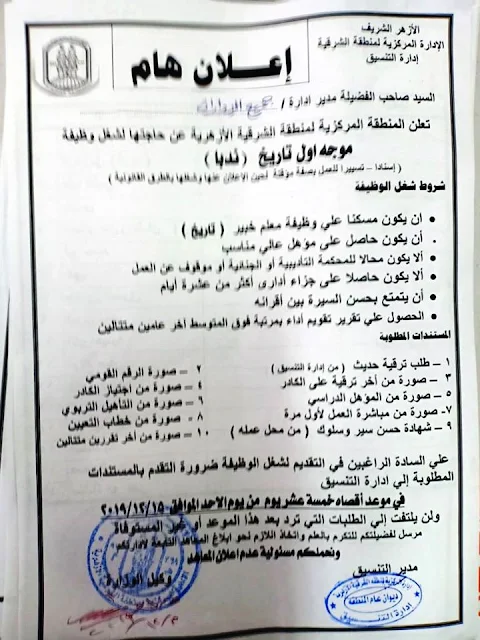 الأزهر الشريف
الإدارة المركزية لمنطقة الشرقية
إدارة التنسيق
إعـــلان هام
السيد صاحب الفضيلة مدير ادارة /
تعلن المنطقة المركزية لمنطقة الشرقية الأزهرية عن حاجتها لشغل وظيفة
موجه اول تاريخ ( ندبا )
( إسنادا – تسييرا للعمل بصفة مؤقتة لحين الاعلان عنها وشغلها بالطرق القانونية )
شروط شغل الوظيفة
• أن يكون مسكنا علي وظيفة معلم خبير ( تاريخ )
• أن يكون حاصل على مؤهل عالي مناسب
• ألا يكون محالا للمحكمة التأديبية أو الجنائية أو موقوف عن العمل
• ألا يكون حاصلا على جزاء أدارى أكثر من عشرة أيام
• أن يتمتع بحسن السيرة بين أقرانه
• الحصول علي تقرير تقويم أداء بمرتبة فوق المتوسط أخر عامين متتالين
المستندات المطلوبة
١ – طلب ترقية حديث ( من إدارة التنسيق ) ٢ – صورة الرقم القومي
٣ – صورة من أخر ترقية على الكادر ٤ – صورة من اجتياز الكادر
٥ – صورة من المؤهل الدراسي ٦ – صورة من التأهيل التربوي
٧- صورة من مباشرة العمل لأول مرة ٨ - صورة من خطاب التعيين
٩ – شهادة حسن سير وسلوك ( من محل عمله ) ١٠ – صورة من أخر تقريرين متتالين
علي السادة الراغبين في التقديم لشغل الوظيفة ضرورة التقدم بالمستندات
المطلوبة إلي إدارة التنسيق
في موعد أقصاه خمسة عشر يوم من يوم الاحد الموافق ٢٠١٩/١٢/١٥
ولن يلتفت إلي الطلبات التي ترد بعد هذا الموعد أو غير المستوفاة
مرسل لفضيلتكم للتكرم بالعلم واتخاذ اللازم نحو ابلاغ المعاهد التابعة لادارتكم
ونحملكم مسئولية عدم اعلان المعاهد
مدير التنسيق
وكيل الوزارة
ديوان عام المنطقة
إدارة التنسيق